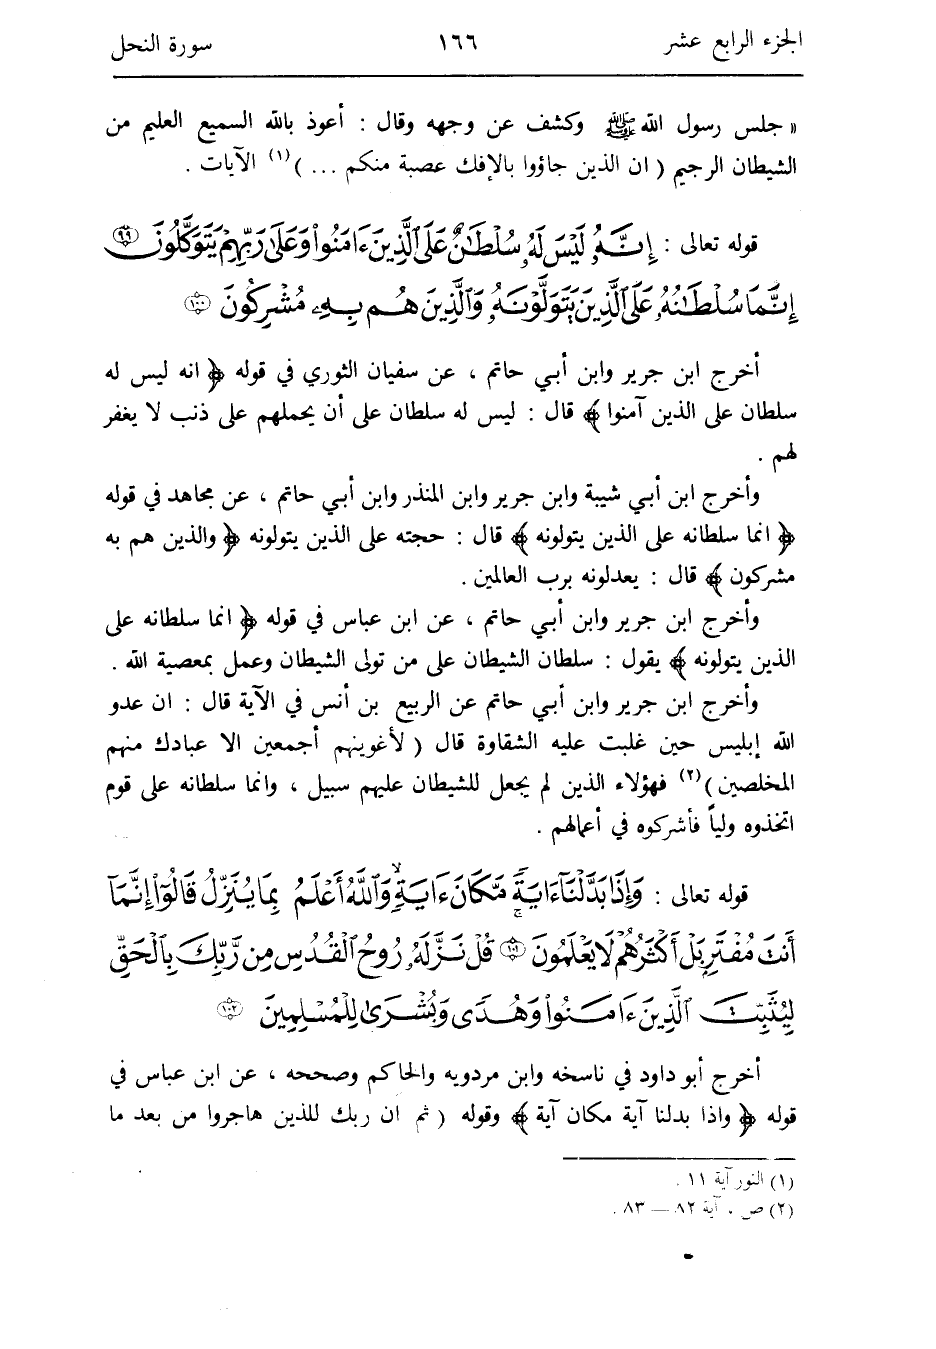 الجزء الرابع عشر ١٦٦ سورة النحل
« جلس رسول الله ﷺ وكشف عن وجهه وقال : أعوذ بالله السميع العليم من
الشيطان الرجيم ( ان الذين جاؤوا بالإفك عصبة منكم ... )(١) الآيات .
قوله تعالى : إِنَّهُۥ لَيْسَ لَهُۥ سُلْطَٰنٌ عَلَى ٱلَّذِينَ ءَامَنُوا۟ وَعَلَىٰ رَبِّهِمْ يَتَوَكَّلُونَ ٩٩
إِنَّمَا سُلْطَٰنُهُۥ عَلَى ٱلَّذِينَ يَتَوَلَّوْنَهُۥ وَٱلَّذِينَ هُم بِهِۦ مُشْرِكُونَ ١٠٠
أخرج ابن جرير وابن أبي حاتم ، عن سفيان الثوري في قوله ﴿ انه ليس له
سلطان على الذين آمنوا ﴾ قال : ليس له سلطان على أن يحملهم على ذنب لا يغفر
لهم .
وأخرج ابن أبي شيبة وابن جرير وابن المنذر وابن أبي حاتم ، عن مجاهد في قوله
﴿ انما سلطانه على الذين يتولونه ﴾ قال : حجته على الذين يتولونه ﴿ والذين هم به
مشركون ﴾ قال : يعدلونه برب العالمين .
وأخرج ابن جرير وابن أبي حاتم ، عن ابن عباس في قوله ﴿ انما سلطانه على
الذين يتولونه ﴾ يقول : سلطان الشيطان على من تولى الشيطان وعمل بمعصية الله .
وأخرج ابن جرير وابن أبي حاتم عن الربيع بن أنس في الآية قال : ان عدو
الله إبليس حين غلبت عليه الشقاوة قال ( لأغوينهم أجمعين الا عبادك منهم
المخلصين )(٢) فهؤلاء الذين لم يجعل للشيطان عليهم سبيل ، وانما سلطانه على قوم
اتخذوه ولياً فأشركوه في أعمالهم .
قوله تعالى : وَإِذَا بَدَّلْنَآ ءَايَةً مَّكَانَ ءَايَةٍ ۙ وَٱللَّهُ أَعْلَمُ بِمَا يُنَزِّلُ قَالُوٓا۟ إِنَّمَآ
أَنتَ مُفْتَرٍۭ بَلْ أَكْثَرُهُمْ لَا يَعْلَمُونَ ١٠١ قُلْ نَزَّلَهُۥ رُوحُ ٱلْقُدُسِ مِن رَّبِّكَ بِٱلْحَقِّ
لِيُثَبِّتَ ٱلَّذِينَ ءَامَنُوا۟ وَهُدًى وَبُشْرَىٰ لِلْمُسْلِمِينَ ١٠٢
أخرج أبو داود في ناسخه وابن مردويه والحاكم وصححه ، عن ابن عباس في
قوله ﴿ واذا بدلنا آية مكان آية ﴾ وقوله ( ثم ان ربك للذين هاجروا من بعد ما
(١) النور آية ١١ .
(٢) ص . آية ٨٢ — ٨٣ .